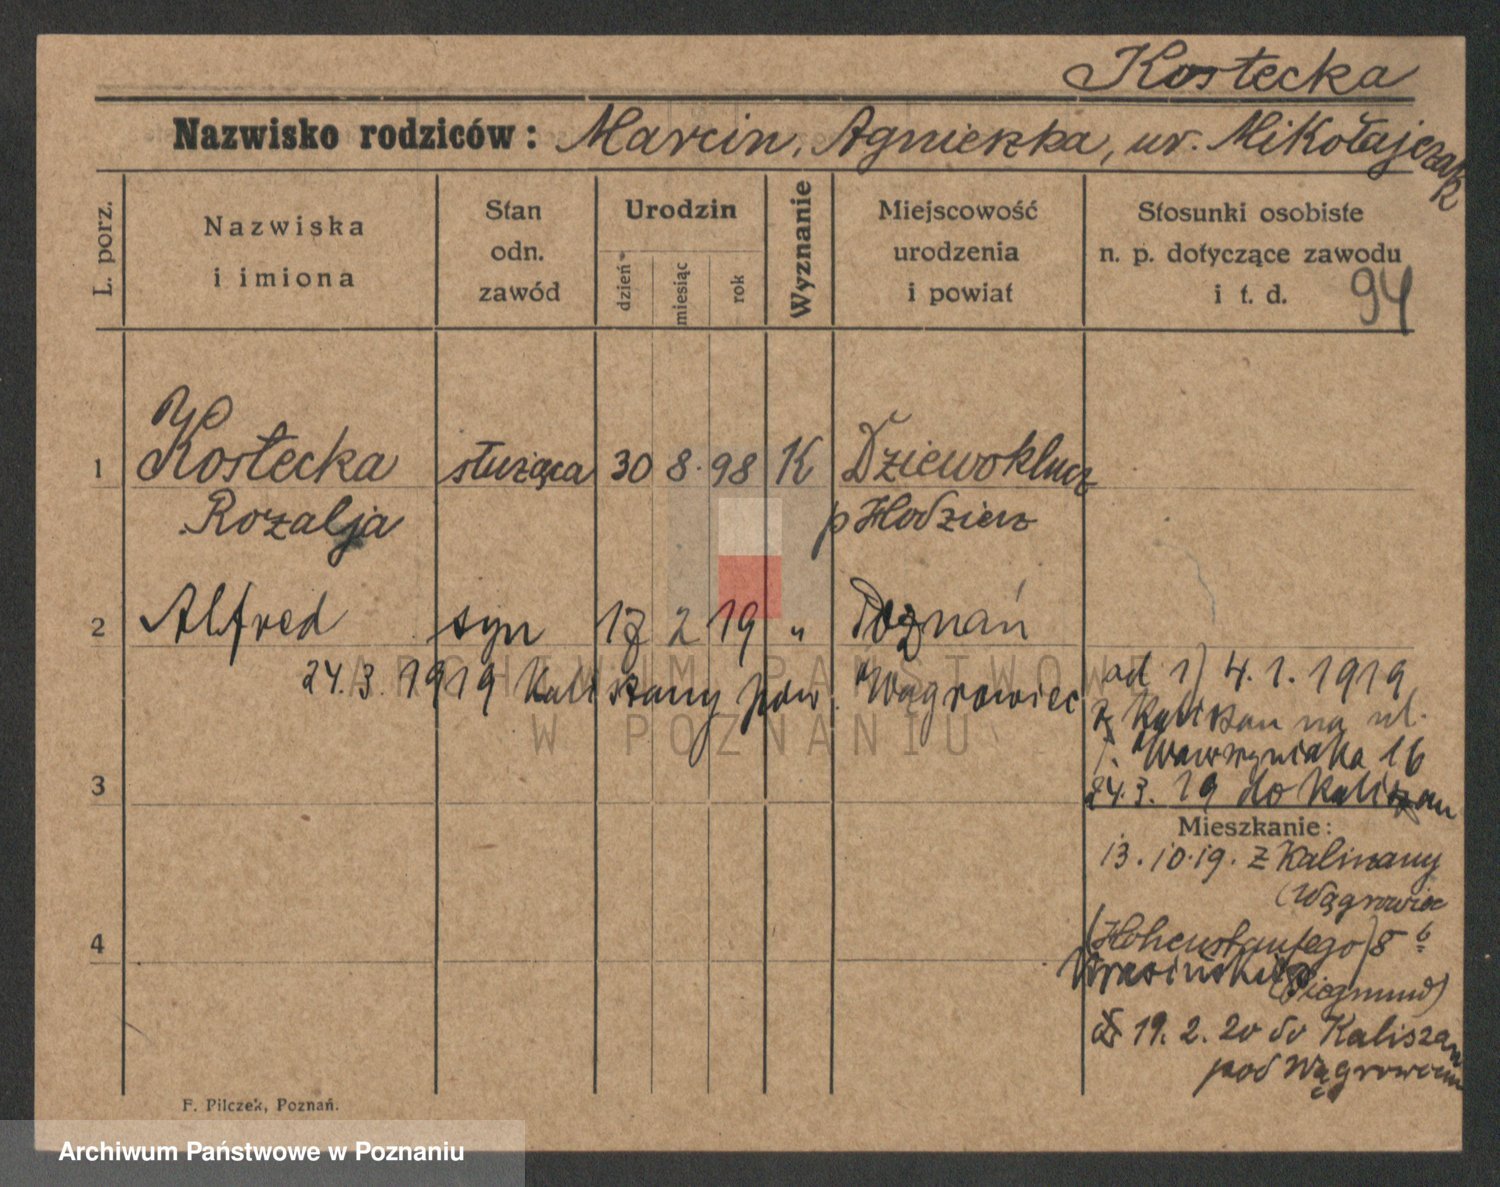 Kostecka
Nazwisko rodziców: Marcin, Agnieszka, ur. Mikołajczak
L. porz.
Nazwiska
i imiona
Stan
odn.
zawód
Urodzin
dzień
miesiąc
rok
Wyznanie
Miejscowość
urodzenia
i powiat
Stosunki osobiste
n. p. dotyczące zawodu
i t. d.
94
1 Kostecka służąca 30 8. 98 K Dziewoklucz
Rozalja p Hodzież
2 Alfred syn 17 2 19 " Poznań
24.3. 1919 Kaliszany pow. Wągrowiec
od 1) 4.1.1919
z Kaliszan na ul.
Wawrzyniaka 16
24.3. 19 do Kaliszan
3
Mieszkanie:
13.10.19. z Kaliszany
(Wągrowiec
4
(Hohenstaufego) 8
Krasińskiego
(Siegmund)
19. 2. 20 do Kaliszan
pod Wągrowcem
F. Pilczek, Poznań.
ARCHIWUM PAŃSTWOWE
W POZNANIU
Archiwum Państwowe w Poznaniu